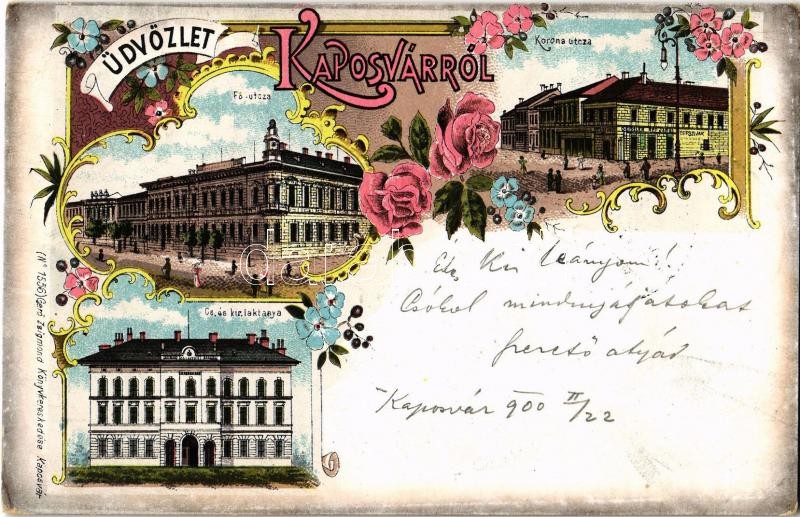 ÜDVÖZLET
KAPOSVÁRRÓL
Korona utcza
Fő-utcza
Cs. és kir. laktanya
Édes Kis leányom!
Csókol mindnyájatokat
szerető atyád
Kaposvár 900 II/22
(Nº 1536) Gerő Zsigmond Könyvkereskedése Kaposvár